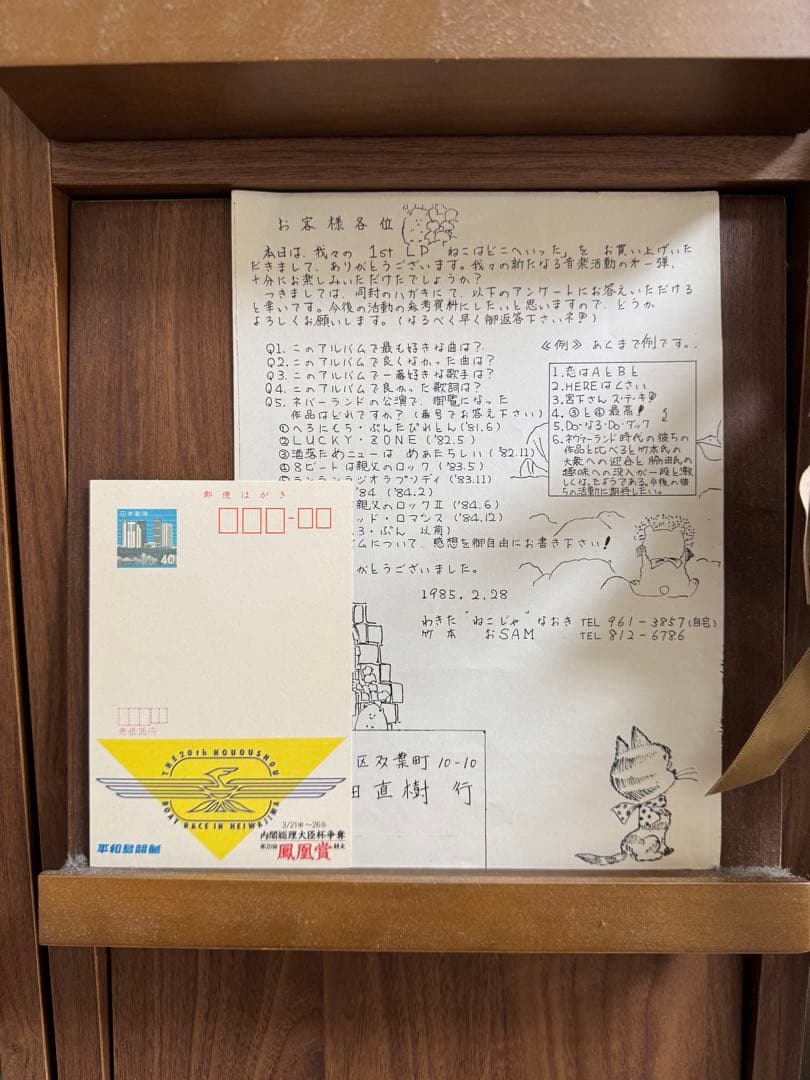 お客様各位
本日は、我々の 1st LP「ねこはどこへいった」を お買い上げいた
だきまして、ありがとうございます。我々の新たなる音楽活動の第一弾、
十分にお楽しみいただけたでしょうか?
つきましては、同封のハガキにて、以下のアンケートにお答えいただける
と幸いです。今後の活動の参考資料にしたいと思いますので、どうか
よろしくお願いします。(なるべく早く御返答下さいネ!)
Q1. このアルバムで最も好きな曲は?
Q2. このアルバムで良くなかった曲は?
Q3. このアルバムで一番好きな歌手は?
Q4. このアルバムで良かった歌詞は?
Q5. ネバーランドの公演で、御覧になった
作品はどれですか?(番号でお答え下さい)
①へろにもち・ぷんたぴれとん('81.6)
②LUCKY・ZONE('82.5)
③洒落ためニューは めぁたらしい('82.11)
④8ビートは親父のロック('83.5)
⑤ランランラジオラプソディ('83.11)
'84('84.2)
親父のロックⅡ('84.6)
ッド・ロマンス('84.12)
3・ぷん 以前)
ムについて、感想を御自由にお書き下さい!
がとうございました。
1985.2.28
わきた“ねこじゃ”なおき TEL 961-3857(自宅)
竹本 おSAM TEL 812-6786
≪例≫ あくまで例です。
1.恋はAとBと
2.HEREはくさい
3.宮下さん ス・テ・キ!
4.③と④最高!
5.Do・なる・Do・ダック
6.ネヴァーランド時代の彼らの
作品と比べると竹本氏の
大衆への迎合と脇田氏の
趣味への没入が一段と激
しくなったようである。今後の彼
らの活動に期待したい。
区双葉町10-10
田直樹 行
郵便はがき
日本郵便
40
売価35円
THE 20th HOUOUSHOU
BOAT RACE IN HEIWAJIMA
3/21㊍~26㊋
内閣総理大臣杯争奪
第20回 鳳凰賞 競走
平和島競艇